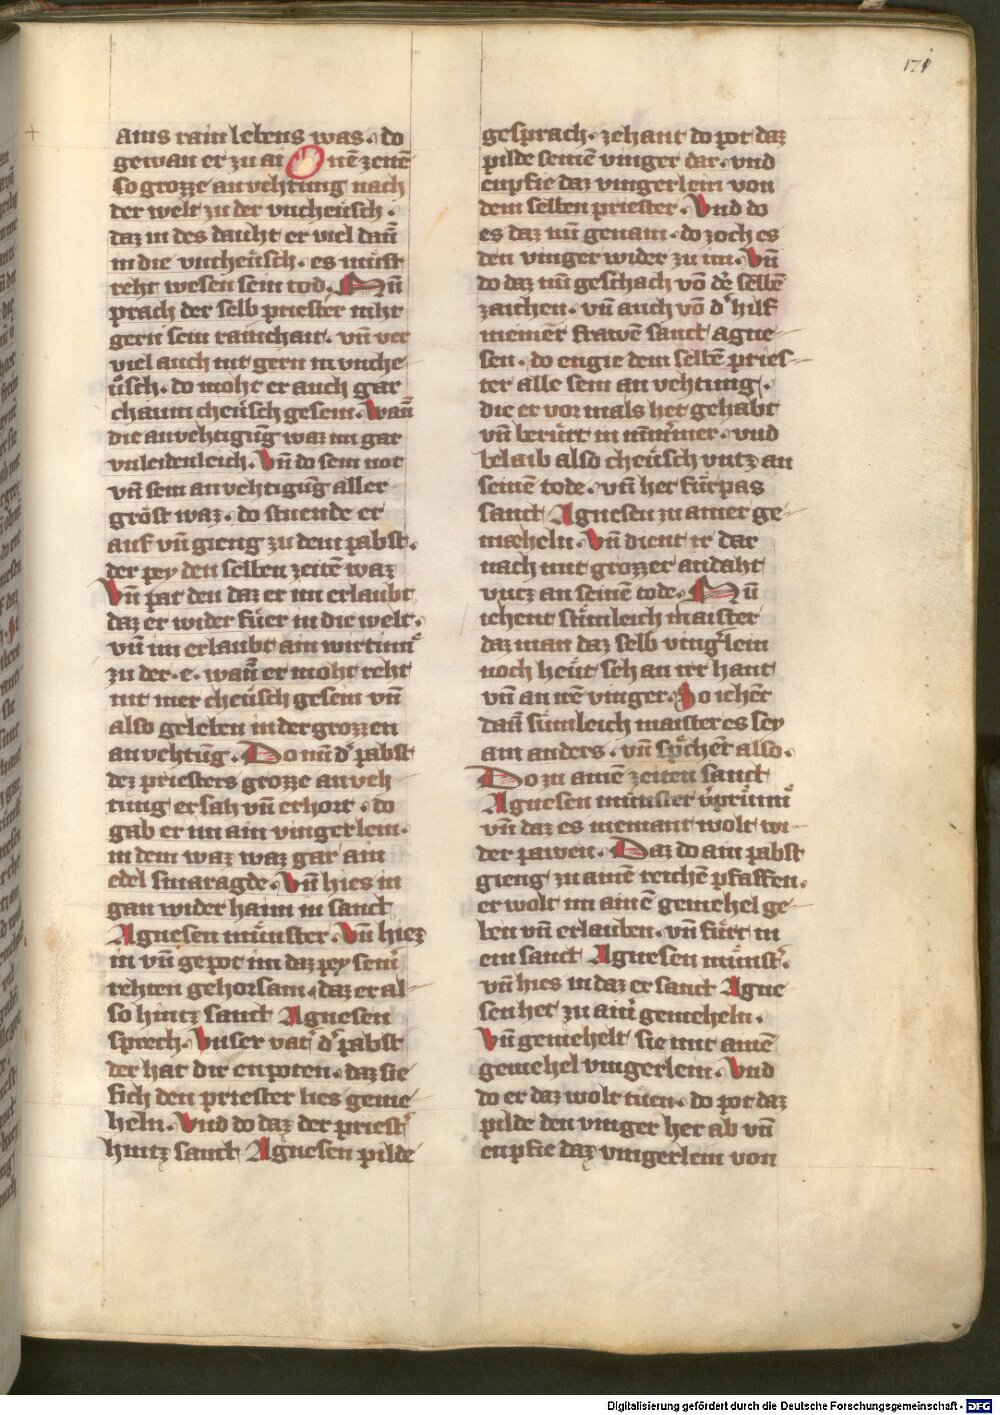 171
ains rain lebens was · do
gewan er zu ainē zeitē
so grozze anvehtung nach
der welt zu der vncheüsch ·
daz in des dauht er viel dañ
in die vncheüsch · es müst
reht wesen sein tod · Nū
prach der selb priester niht
gern sein rainchait · vñ ver
viel auch nit gern in vnche-
üsch · do moht er auch gar
chaum cheüsch gesein · wañ
die anvehtigūg waz im gar
vnleidenleich · Vñ do sein not
vñ sein anvehtigūg aller
gröst waz · do stuende er
auf vñ gieng zu dem pabst ·
der pey den selben zeitē waz
Vñ pat den daz er im erlaubt
daz er wider füer in die welt ·
vñ im erlaubt ain wirtinn
zu der · e · wañ er moht reht
nit mer cheüsch gesein vñ
also geleben in der grozzen
anvehtūg · Do nū dʼ pabst
dez priesters grozze anveh
tung ersah vñ erhort · do
gab er im ain vingerlein ·
in dem waz waz gar ain
edel smaragde · Vñ hies in
gan wider haim in sanct
Agnesen münster · Vñ hiez
in vñ gepot im daz pey seinʼ
rehten gehorsam · daz er al-
so hintz sanct Agnesen
sprech · Vnser vatʼ dʼ pabst
der hat dir enpoten · daz sie
sich den priester lies geme-
heln · Vnd do daz der priestʼ
hintz sanct Agnesen pilde
gesprach · zehant do pot daz
pilde seinē vinger dar · vnd
enpfie daz vingerlein von
dem selben priester · Vnd do
es daz nū genam · do zoch es
den vinger wider zu im · Vñ
do daz nū geschach vō dē selbē
zaichen · vñ auch vō dʼ hilf
meinerʼ frawē sanct Agne-
sen · do engie dem selbē pries-
ter alle sein anvehtung ·
die er vormals het gehabt
vñ berürt in nimʼmer · vnd
belaib also cheüsch vntz an
seinē tode · vñ het fürpas
sanct Agnesen zu ainer ge-
mæheln · Vñ dient ir dar
nach mit grozzer andaht
vntz an seinē tode · Nū
ichent sümleich maister
daz man daz selb vingʼlein
noch heüt seh an irr hant
vñ an irē vinger · So ichēt
dañ sümleich maister es sey
ain anders · vñ sprʼchēt also ·
Do zu ainē zeiten sanct
Agnesen münster vʼprünnʼ
vñ daz es niemant wolt wi-
der pawen · Daz do ain pabst
gieng zu ainē reichē pfaffen ·
er wolt im ainē gemehel ge-
ben vñ erlauben · vñ fürt in
ein sanct Agnesen münstʼ ·
vñ hies in daz er sanct Agne
sen het zu ainʼ gemeheln ·
Vñ gemehelt sie mit ainē
gemehel vingerlein · Vnd
do er daz wolt tüen · do pot daz
pilde den vinger her ab vñ
enpfie daz vingerlein von
Digitalisierung gefördert durch die Deutsche Forschungsgemeinschaft - DFG